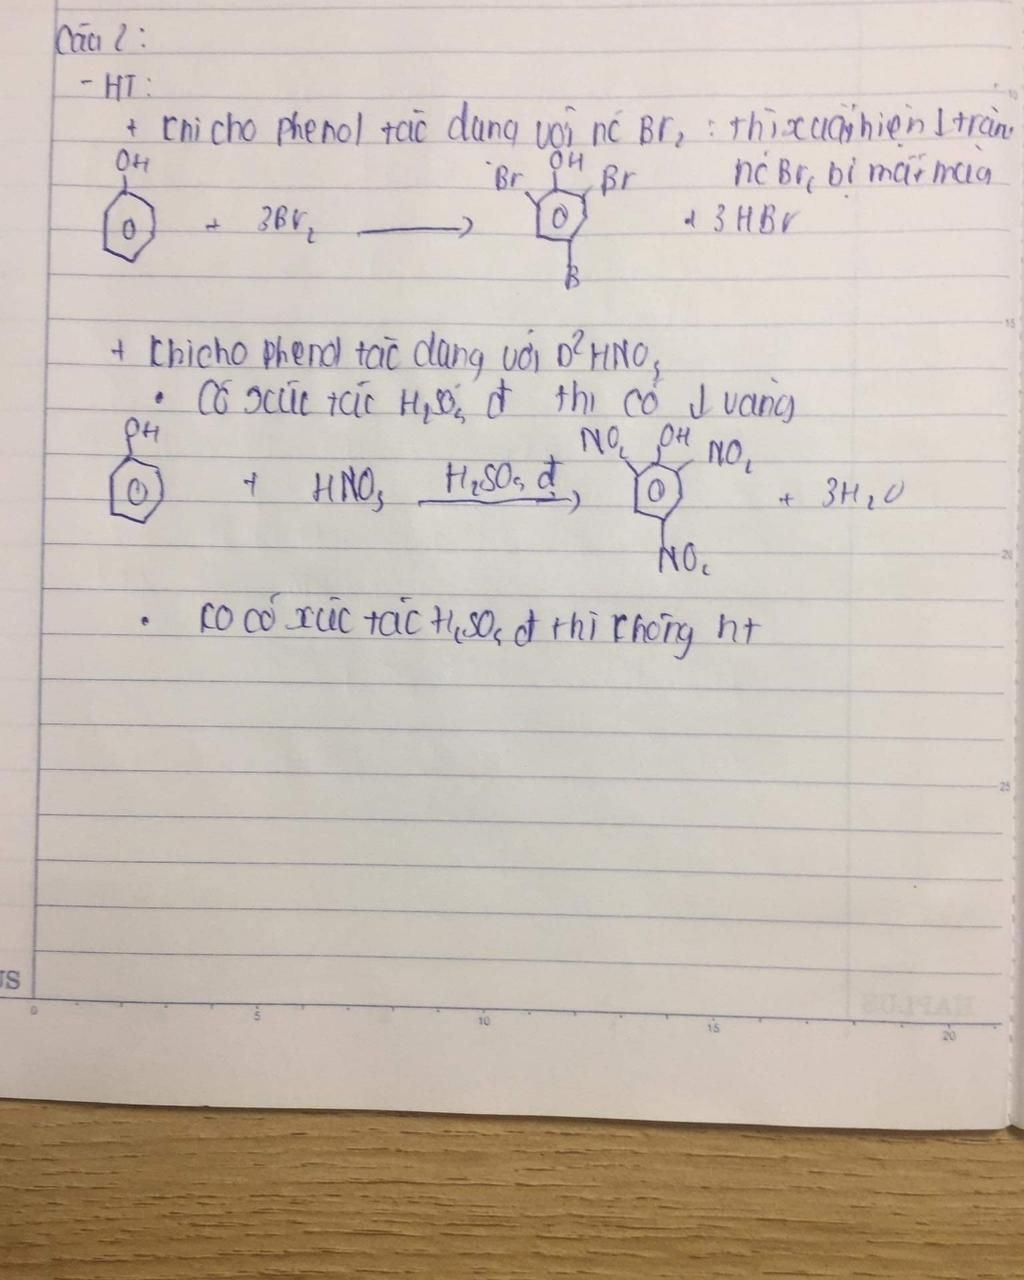 Câu 2:
- HT:
+ khi cho phenol tác dụng với nc Br2 : thì xuất hiện ↓ trắng
nc Br2 bị mất màu
OH
OH
Br
Br
+ 3Br2 ⟶
+ 3HBr
B
+ khi cho phenol tác dụng với D² HNO3
• Có xúc tác H2SO4 đ thì có ↓ vàng
OH
NO2
OH
NO2
+ HNO3
H2SO4 đ
+ 3H2O
NO2
• ko có xúc tác H2SO4 đ thì không ht
US
10
15
20
25
0
5
10
15
20
HAPLUS